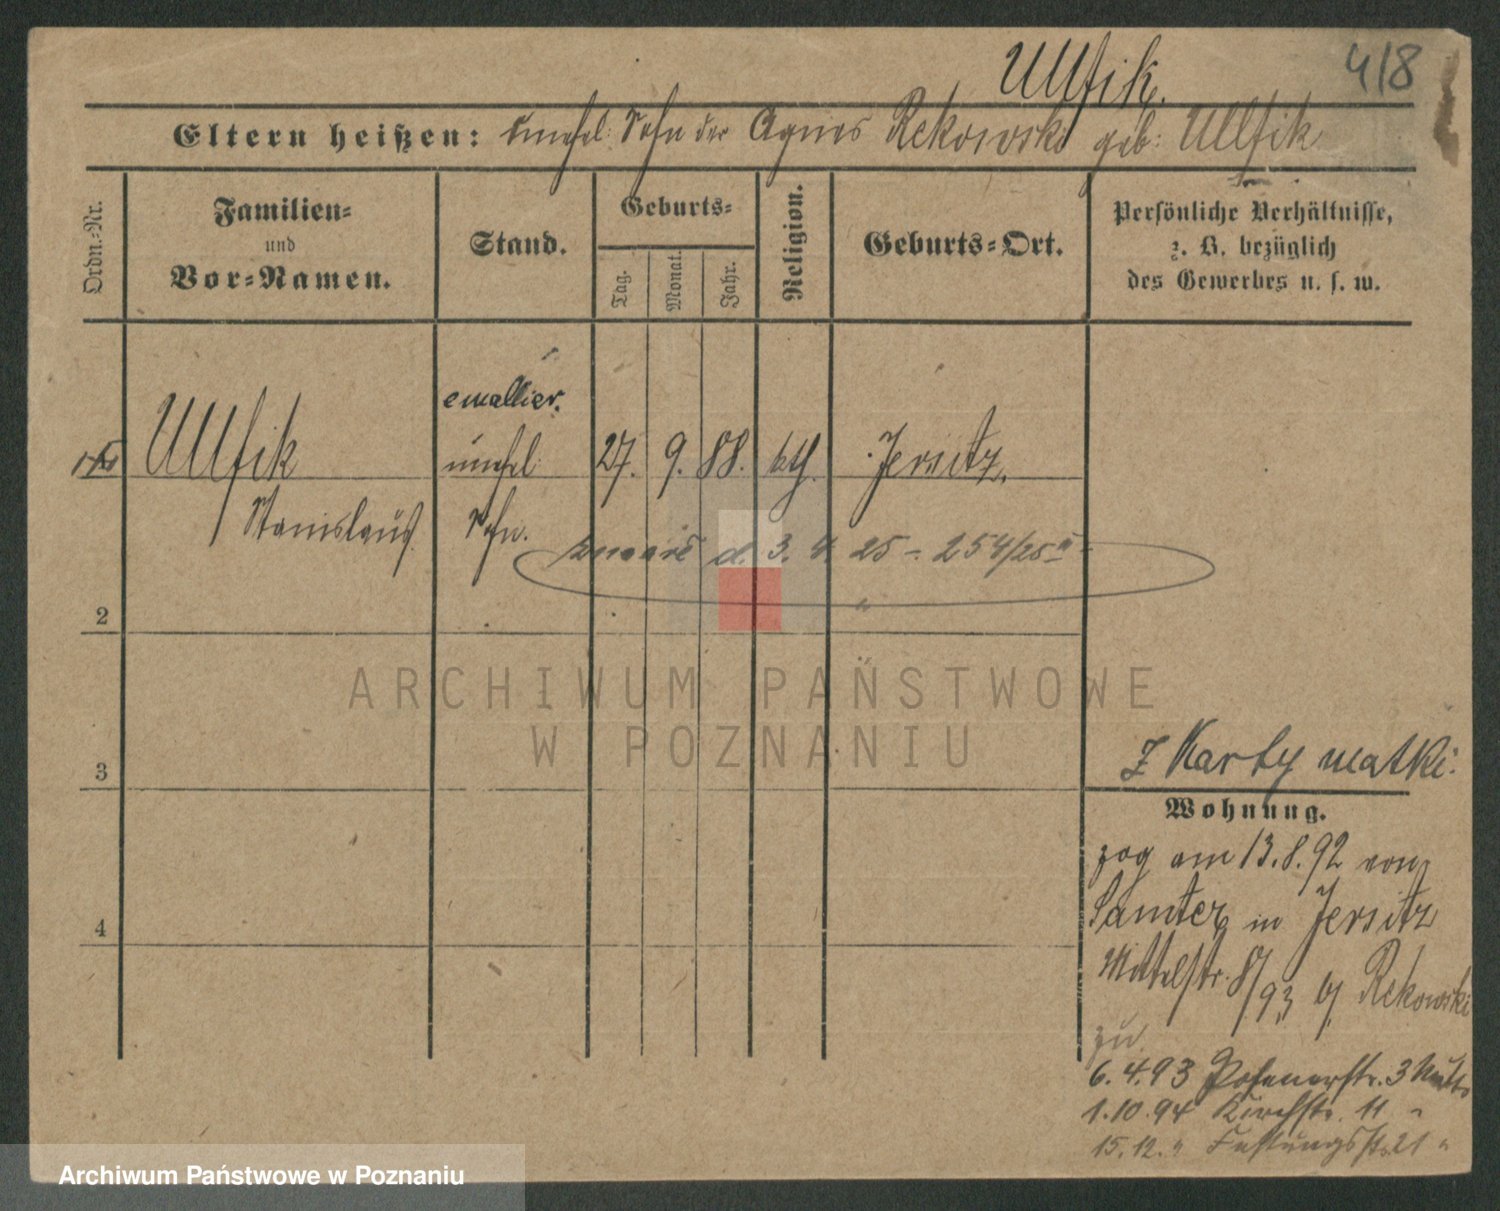 Ullfik.
4/8
Eltern heißen: unehel. Sohn der Agnes Rekowski geb: Ullfik
Ordn.-Nr.
Familien-
und
Vor-Namen.
Stand.
Geburts-
Tag.
Monat.
Jahr.
Religion.
Geburts-Ort.
Persönliche Verhältnisse,
z. B. bezüglich
des Gewerbes u. s. w.
emallier.
Ullfik
unehel.
27. 9. 88. kth. Jersitz.
Stanislaus
Sohn.
d. 3. 4. 25 - 254/25
2
ARCHIWUM PAŃSTWOWE
W POZNANIU
3
Z Karty matki.
Wohnung.
zog am 13.8.92 von
Samter in Jersitz
Mittelstr. 8/93 bj Rekowski
zu
6.4.93 Posenerstr. 3
1.10.94 Kirchstr. 11 "
15.12. " Festungsstr. 21 "
4
Archiwum Państwowe w Poznaniu